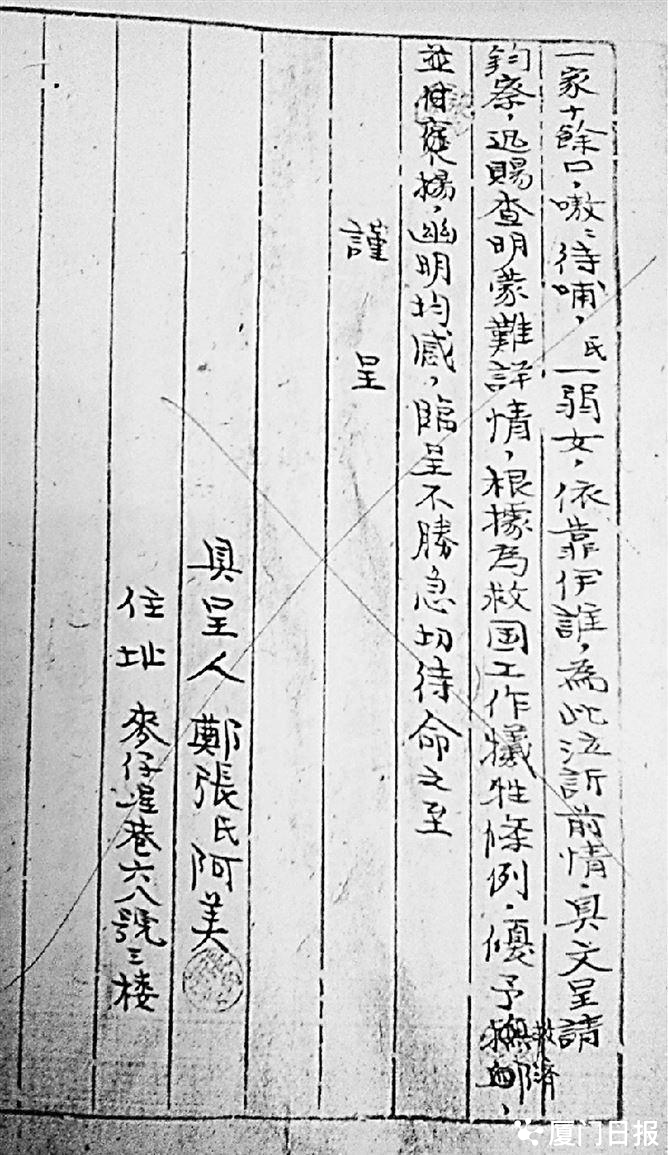 一家十餘口，嗷〻待哺，氏一弱女，依靠伊誰，為此泣訴前情，具文呈請
鈞察，迅賜查明蒙難詳情，根據為救国工作犧牲條例，優予撫卹，
救濟
並付褒揚，幽明均感，臨呈不勝急切待命之至
謹呈
具呈人 鄭張氏阿美
住址 麥仔埕巷六八號三楼
厦门日报